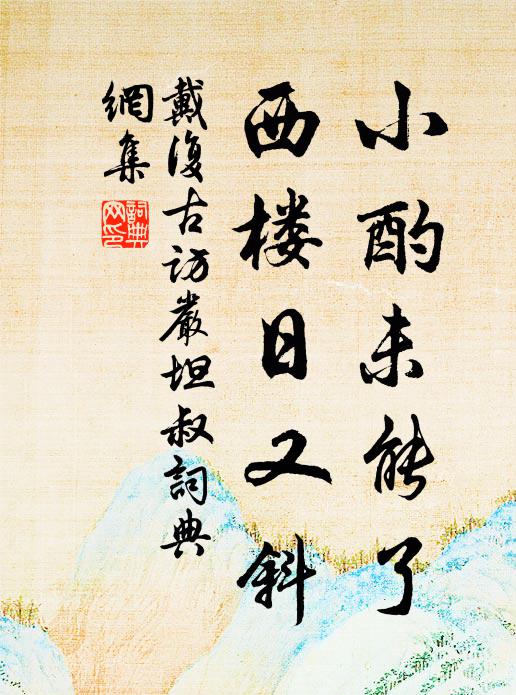 小酌未能了
西楼日又斜
戴復古訪嚴坦叔詞典
網集
詞典网印